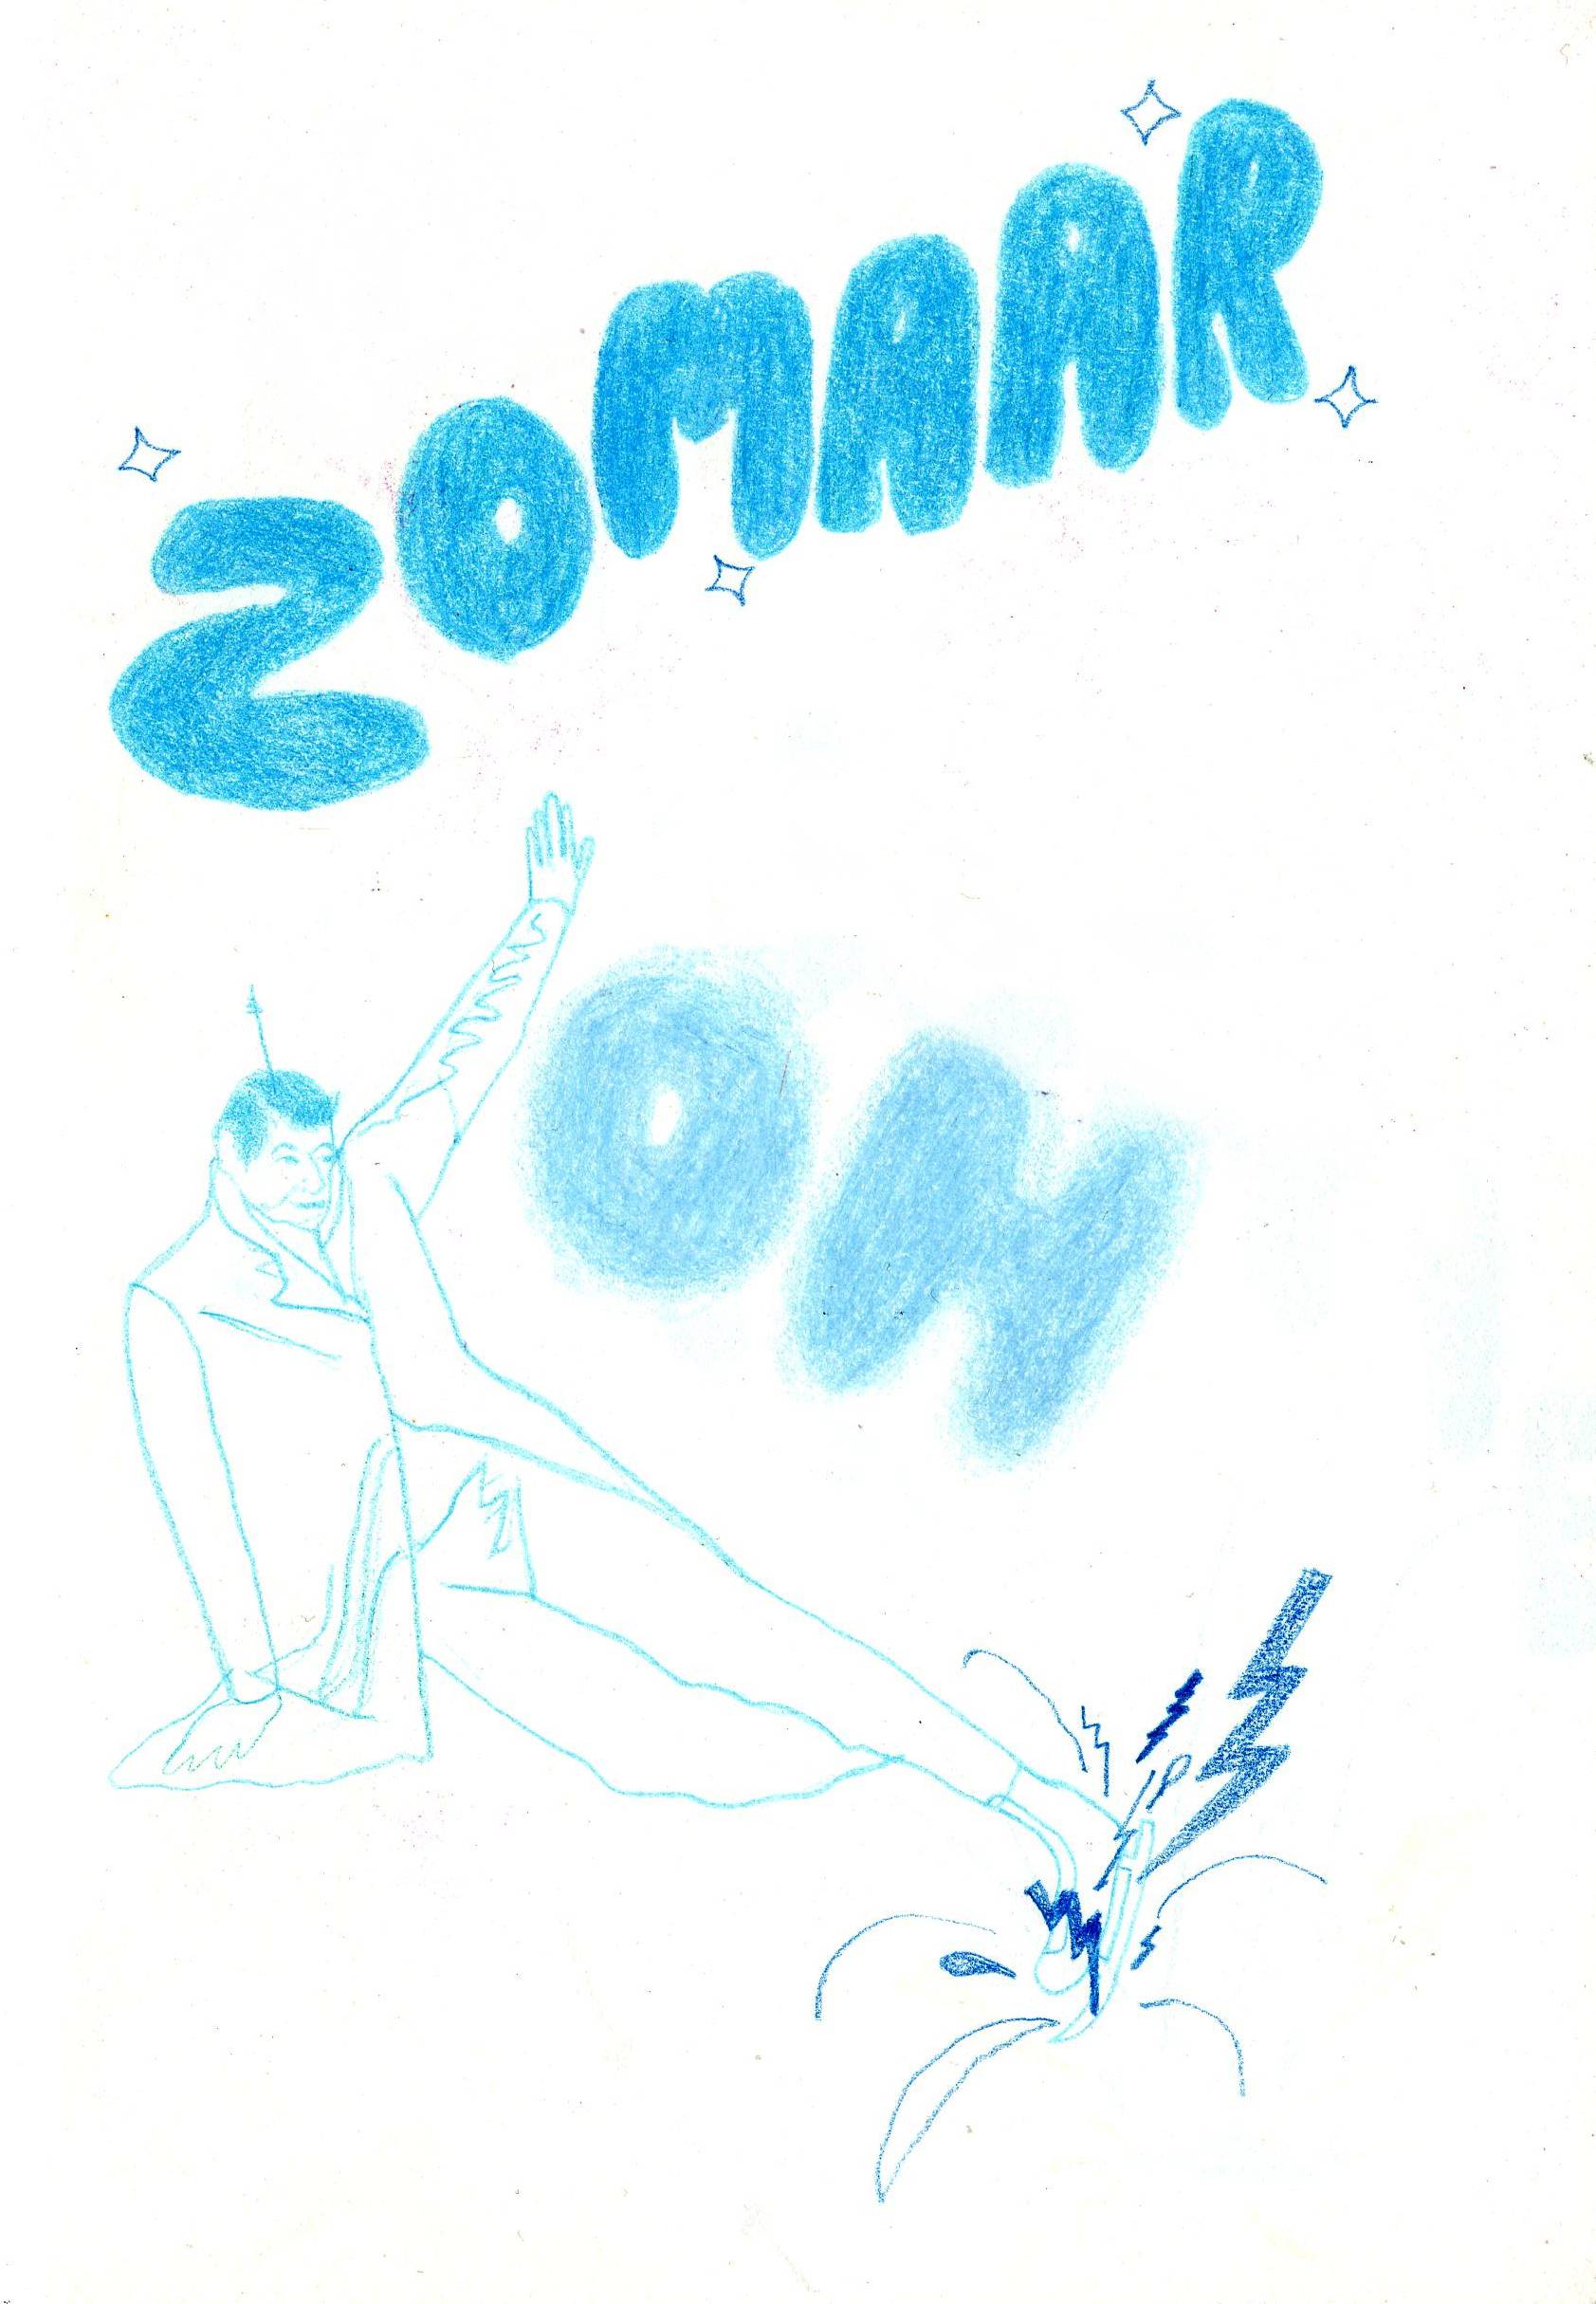 ZOMAAR
ON